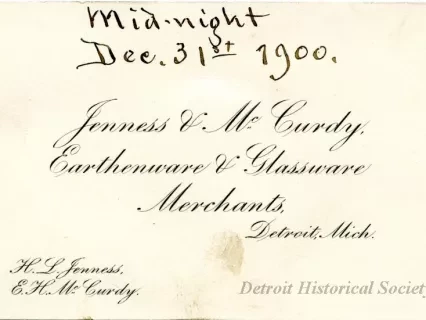 Mid-night
Dec. 31st 1900.
Jenness & Mc Curdy,
Earthenware & Glassware
Merchants,
Detroit, Mich.
H. L. Jenness,
E. H. Mc Curdy.
Detroit Historical Society